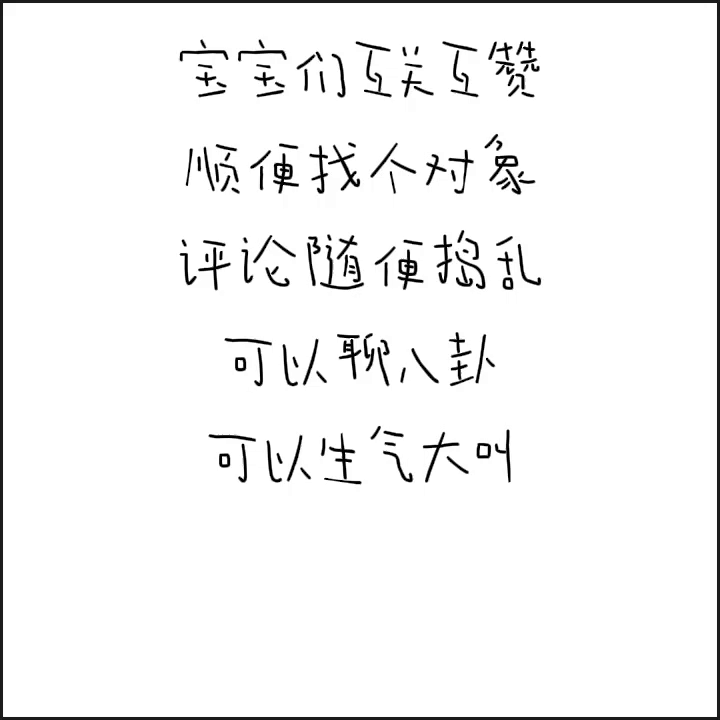 宝宝们互关互赞
顺便找个对象
评论随便捣乱
可以聊八卦
可以生气大叫